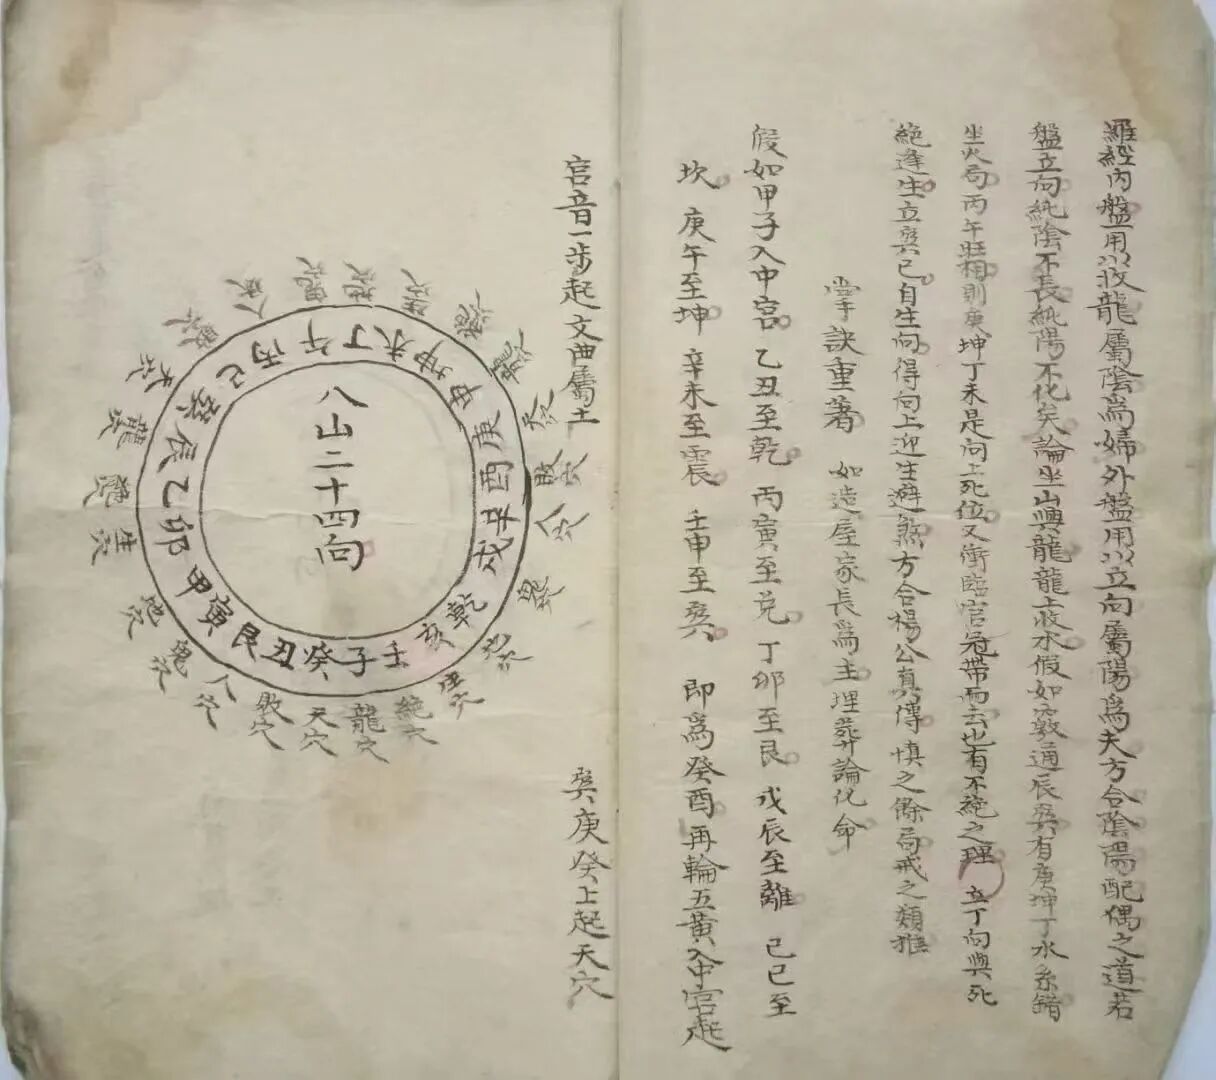 羅經內盤用以收龍屬陰為婦外盤用以立向屬陽為夫方合陰陽配偶之道若
盤立向純陰不長純陽不化矣論坐山與龍龍上收水假如亥龍通辰巽有庚坤丁水系錯
坐火局丙午旺相則庚坤丁未是向上死位又衝臨官冠帶而去也有不絕之理 立丁向與死
絕逢生立巽已自生向得向上迎生避煞方合楊公真傳慎之餘局戒之類推
掌訣重著 如造屋家長為主埋葬論化命
假如甲子入中宮 乙丑至乾 丙寅至兌 丁卯至艮 戊辰至離 己巳至
坎 庚午至坤 辛未至震 壬申至巽 即為癸酉再輪五黃入中宮起
宮音一步起文曲屬土
巽庚癸上起天穴
八山二十四向
壬子癸丑艮寅甲卯乙辰巽巳丙午丁未坤申庚酉辛戌乾亥
絕穴
龍穴
天穴
敗穴
人穴
鬼穴
地穴
生穴
絕穴
龍穴
天穴
敗穴
人穴
鬼穴
地穴
生穴
絕穴
龍穴
天穴
敗穴
人穴
鬼穴
地穴
生穴